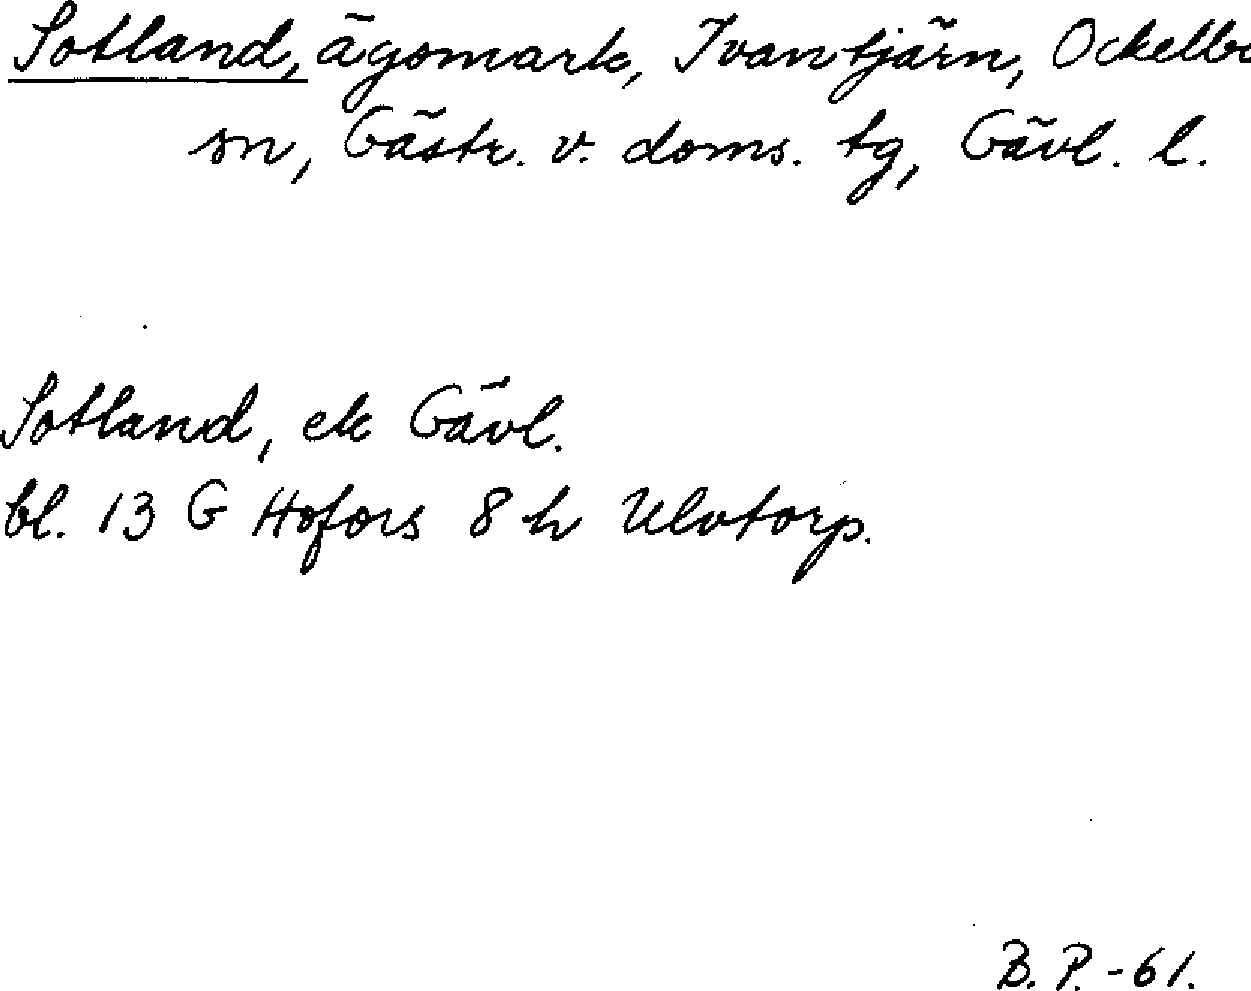 Sotland, ägomark, Ivantjärn, Ockelbo
sn, Gästr. v. doms. tg, Gävl. l.
Sotland, ek Gävl.
bl. 13 G Hofors 8 h Ulvtorp.
B. P. -61.